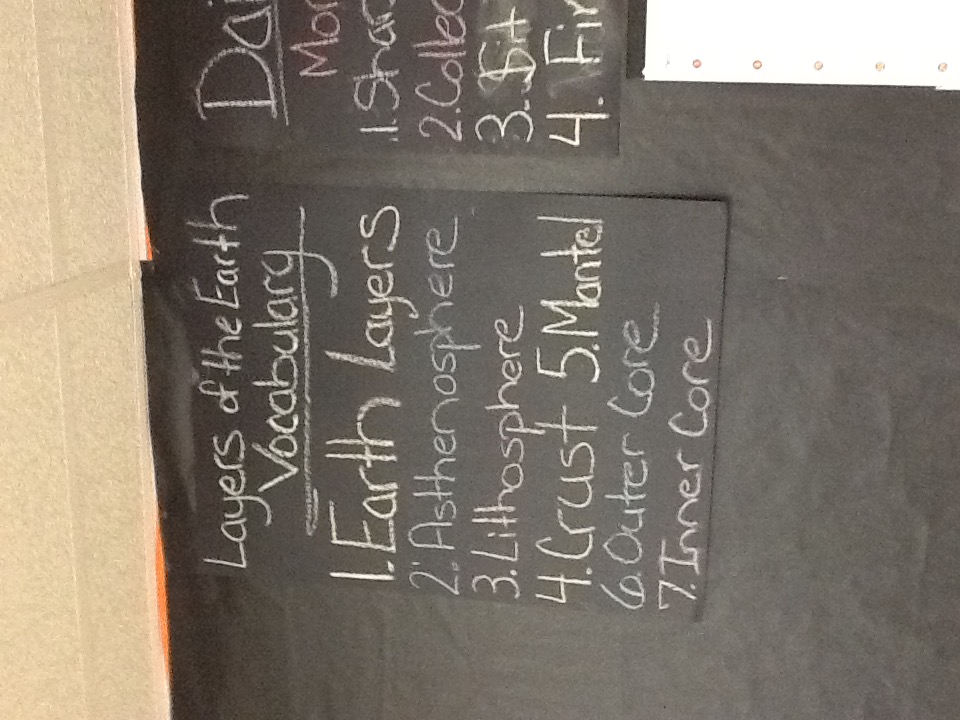 Layers of the Earth
Vocabulary
1. Earth Layers
2. Asthenosphere
3. Lithosphere
4. Crust 5. Mantel
6. Outer Core
7. Inner Core
1.
2.
3.
4.